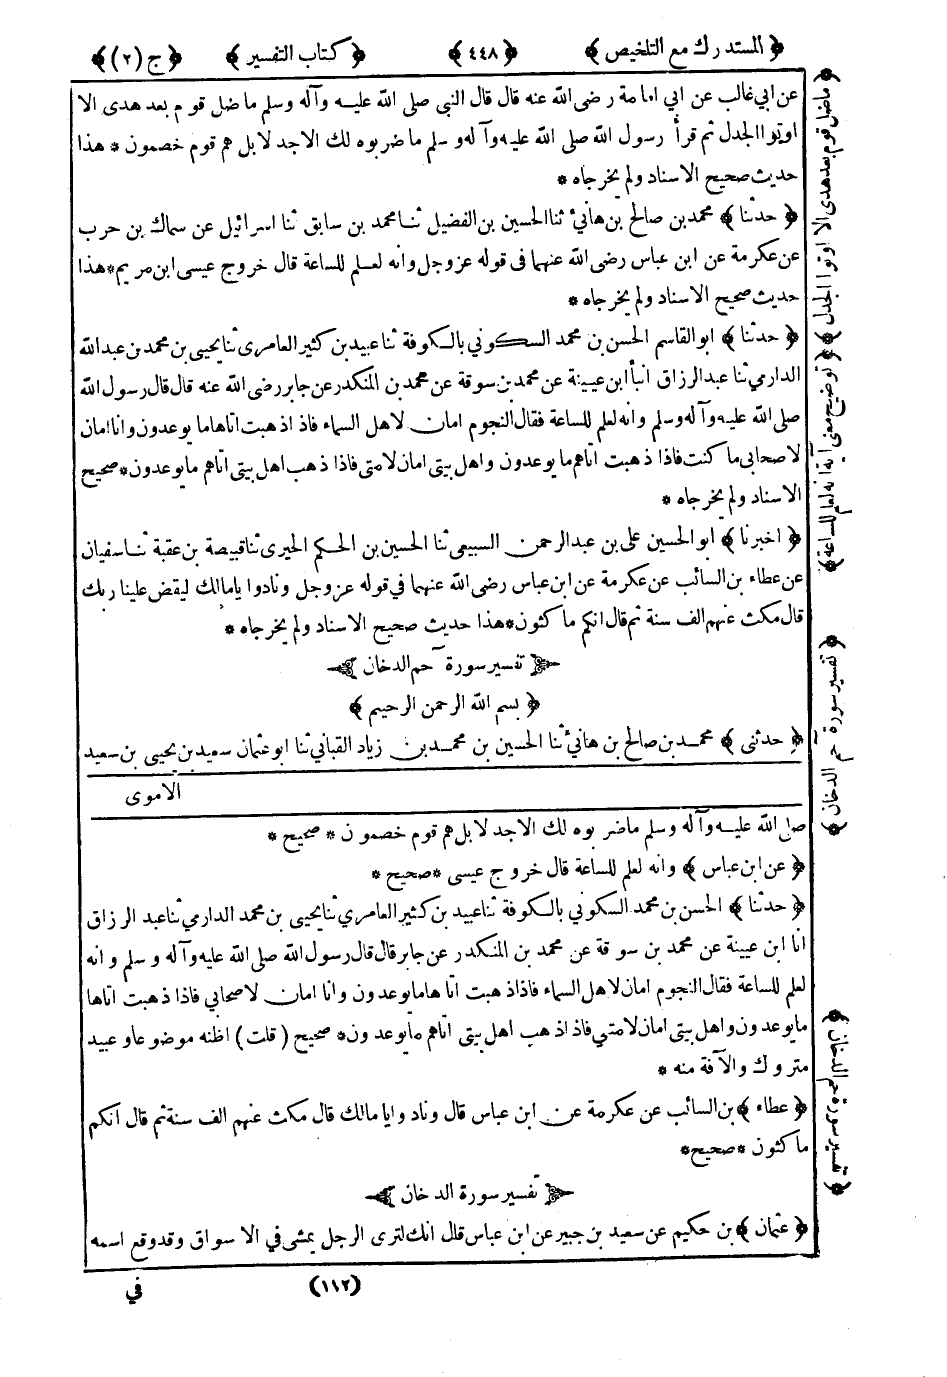 ﴿ المستدرك مع التلخيص ﴾ ﴿ ٤٤٨ ﴾ ﴿ كتاب التفسير ﴾ ﴿ ج (٢) ﴾
عن ابي غالب عن ابي امامة رضى الله عنه قال قال النبى صلى الله عليه وآله وسلم ماضل قوم بعد هدى الا
اوتوا الجدل ثم قرأ رسول الله صلى الله عليه وآله وسلم ماضربوه لك الاجدلا بل هم قوم خصمون * هذا
حديث صحيح الاسناد ولم يخرجاه *
﴿ حدثنا ﴾ محمد بن صالح بن هانئ ثنا الحسين بن الفضيل ثنا محمد بن سابق ثنا اسرائيل عن سماك بن حرب
عن عكرمة عن ابن عباس رضى الله عنهما فى قوله عزوجل وانه لعلم للساعة قال خروج عيسى ابن مريم * هذا
حديث صحيح الاسناد ولم يخرجاه *
﴿ حدثنا ﴾ ابو القاسم الحسن بن محمد السكوني بالكوفة ثنا عبيد بن كثير العامرى ثنا يحيى بن محمد بن عبدالله
الدارمي ثنا عبدالرزاق انبأ ابن عيينة عن محمد بن سوقة عن محمد بن المنكدر عن جابر رضى الله عنه قال قال رسول الله
صلى الله عليه وآله وسلم وانه لعلم للساعة فقال النجوم امان لاهل السماء فاذا ذهبت اتاها ما يوعدون وانا امان
لاصحابى ما كنت فاذا ذهبت اتاهم ما يوعدون واهل بيتى امان لامتى فاذا ذهب اهل بيتى اتاهم مايوعدون * صحيح
الاسناد ولم يخرجاه *
﴿ اخبرنا ﴾ ابو الحسين على بن عبدالرحمن السبيعى ثنا الحسين بن الحكم الحيرى ثنا قبيصة بن عقبة ثنا سفيان
عن عطاء بن السائب عن عكرمة عن ابن عباس رضى الله عنهما في قوله عزوجل ونادوا يامالك ليقض علينا ربك
قال مكث عنهم الف سنة ثم قال انكم ماكثون * هذا حديث صحيح الاسناد ولم يخرجاه *
تفسير سورة حم الدخان
﴿ بسم الله الرحمن الرحيم ﴾
﴿ حدثنى ﴾ محمد بن صالح بن هانئ ثنا الحسين بن محمد بن زياد القبانى ثنا ابو عثمان سعيد بن يحيى بن سعيد
الاموى
صلى الله عليه وآله وسلم ماضربوه لك الاجدلا بل هم قوم خصمون * صحيح *
﴿ عن ابن عباس ﴾ وانه لعلم للساعة قال خروج عيسى * صحيح *
﴿ حدثنا ﴾ الحسن بن محمد السكوني بالكوفة ثنا عبيد بن كثير العامري ثنا يحيى بن محمد الدارمي ثنا عبد الرزاق
انا ابن عيينة عن محمد بن سوقة عن محمد بن المنكدر عن جابر قال قال رسول الله صلى الله عليه وآله وسلم وانه
لعلم للساعة فقال النجوم امان لاهل السماء فاذا ذهبت اتاها مايوعدون وانا امان لاصحابي فاذا ذهبت اتاها
مايوعدون واهل بيتى امان لامتي فاذا ذهب اهل بيتى اتاهم مايوعدون * صحيح ( قلت ) اظنه موضوعا وعبيد
متروك والآفة منه *
﴿ عطاء ﴾ بن السائب عن عكرمة عن ابن عباس قال ونادوا يامالك قال مكث عنهم الف سنة ثم قال انكم
ماكثون * صحيح *
تفسير سورة الدخان
﴿ عثمان ﴾ بن حكيم عن سعيد بن جبير عن ابن عباس قال انك لترى الرجل يمشى في الاسواق وقد وقع اسمه
(١١٢) في
﴿ ماضل قوم بعد هدى الا اوتوا الجدل ﴾
﴿ توضيح معنى آية انه لعلم للساعة ﴾
﴿ تفسير سورة حم الدخان ﴾
﴿ تفسير سورة حم الدخان ﴾